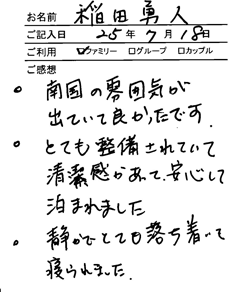 お名前 稲田勇人
ご記入日 25年7月18日
ご利用 ☑ファミリー □グループ □カップル
ご感想
。南国の雰囲気が
出ていて良かったです。
。とても整備されていて
清潔感があって、安心して
泊まれました
。静かでとても落ち着いて
寝られました.